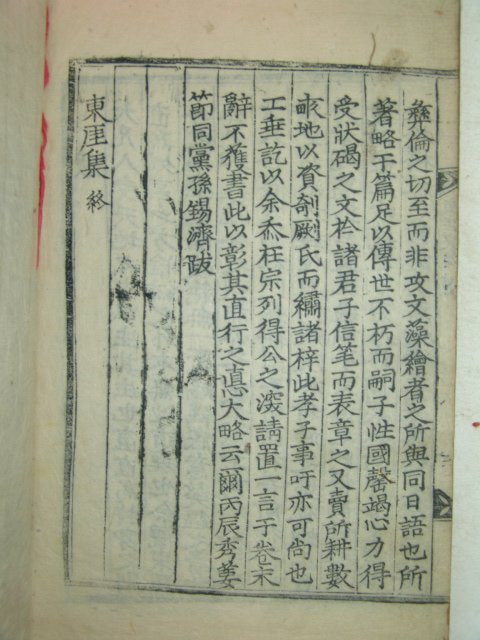 彜倫之切至而非攻文藻繪者之所與同日語也所
著略干篇足以傳世不朽而嗣子性國罄竭心力得
受狀碣之文於諸君子信笔而表章之又賣所耕數
畝地以資剞劂氏而繡諸梓此孝子事吁亦可尚也
工垂訖以余忝在宗列得公之深請置一言于卷末
辭不獲書此以彰其直行之悳大略云爾丙辰秀葽
節同黨孫錫濟跋
東厓集 終